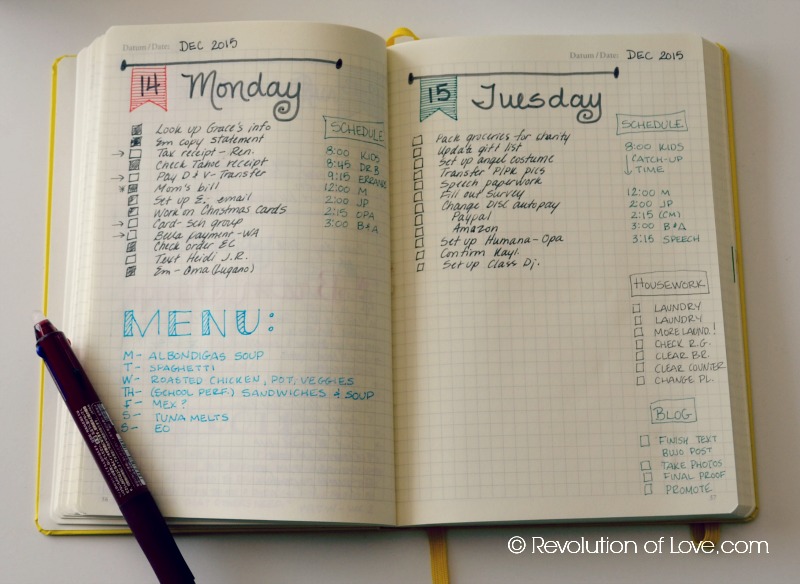 Datum / Date: DEC 2015
14 Monday
Look up Grace's info
Em copy statement
Tax receipt - Ren.
Check Tahoe receipt
Pay D & V - Transfer
Mom's bill
Set up E. email
Work on Christmas Cards
Card - Sch group
Bella payment - WA
Check order EC
Text Heidi J.R.
Em - Oma (Lugano)
SCHEDULE
8:00 KIDS
8:45 DR. B
9:15 ERRANDS
12:00 M
2:00 JP
2:15 OPA
3:00 B+A
MENU:
M- ALBONDIGAS SOUP
T- SPAGHETTI
W- ROASTED CHICKEN, POT, VEGGIES
TH- (SCHOOL PERF.) SANDWICHES & SOUP
F- MEX?
S- TUNA MELTS
S- EO
Datum / Date: DEC 2015
15 Tuesday
Pack groceries for charity
Update gift list
Set up angel costume
Transfer P/PK pics
Speech paperwork
Fill out survey
Change Disc autopay
Paypal
Amazon
Set up Humana - Opa
Confirm Kayl.
Set up Class Dj.
SCHEDULE
8:00 KIDS
CATCH-UP
TIME
12:00 M
2:00 JP
2:15 (CM)
3:00 B+A
3:15 SPEECH
HOUSEWORK
LAUNDRY
LAUNDRY
MORE LAUND.!
CHECK R.G.
CLEAR B.R.
CLEAR COUNTER
CHANGE PL.
BLOG
FINISH TEXT
BUJO POST
TAKE PHOTOS
FINAL PROOF
PROMOTE
57
© Revolution of Love.com